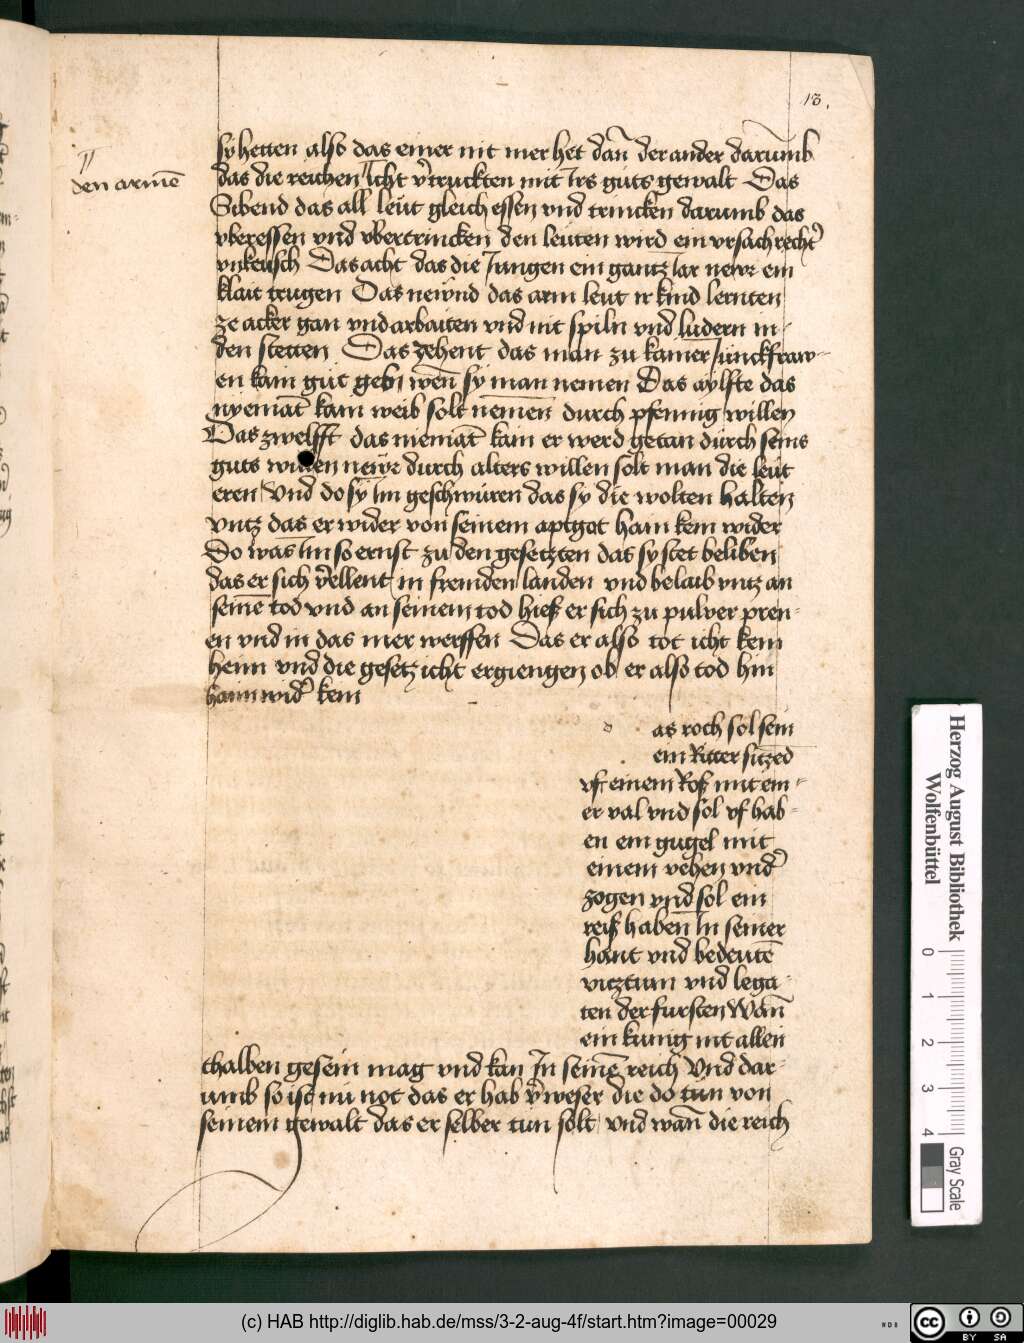 13.
den armē
sy hetten also das einer nit mer het dañ der ander darumb
das die reichen icht v̉truckten mit irs guts gewalt Das
Sibend das all leut gleich essen vnd trincken darumb das
vberessen vnd vbertrincken den leuten wird ein vrsach recht̉
vnkeusch Das acht das die Jungen ein gantz Jar newr ein
klait trugen Das newnd das arm leut ir kind lernten
ze acker gan vnd arbaiten vnd nit spiln vnd ludern in
den stetten Das zehent das man zu kamer Junckfraw-
en kain gut geb wen̄ sy man nemen Das aylfte das
nyemāt kain weib solt nemen durch pfennig willen
Das zwelfft das niemāt kain er werd getan durch seins
guts willen newr durch alters willen solt man die leut
eren Vnd do sy im geschwuren das sy die wolten halten
vntz das er wider von seinem aptgot haim kem wider
Do was im so ernst zu den gesetzten das sy stet beliben
das er sich v̉ellent in fremden landen vnd belaib vntz an
seinē tod vnd an seinem tod hieß er sich zu pulver pren-
en vnd in das mer werffen Das er also tot icht kem
heim vnd die gesetz icht ergiengen ob er also tod hin
haim wid̉ kem
d as roch sol sein
ein Ritter sitzed
vf einem Roß mit ein-
er val vnd sol vf hab-
en ein gugel mit
einem vehen vnd̉
zogen vnd sol ein
reiß haben in seiner
hant vnd bedeutē
viztum vnd lega-
ten der fursten Wan̄
ein kunig nit allen
thalben gesein mag vnd kan In seinē reich Vnd dar-
umb so ist nu not das er hab v̉weser die do tun von
seinem gewalt das er selber tun solt vnd wan̄ die reich
Herzog August Bibliothek
Wolfenbüttel
0 1 2 3 4
Gray Scale
(c) HAB http://diglib.hab.de/mss/3-2-aug-4f/start.htm?image=00029
WDB
cc BY SA